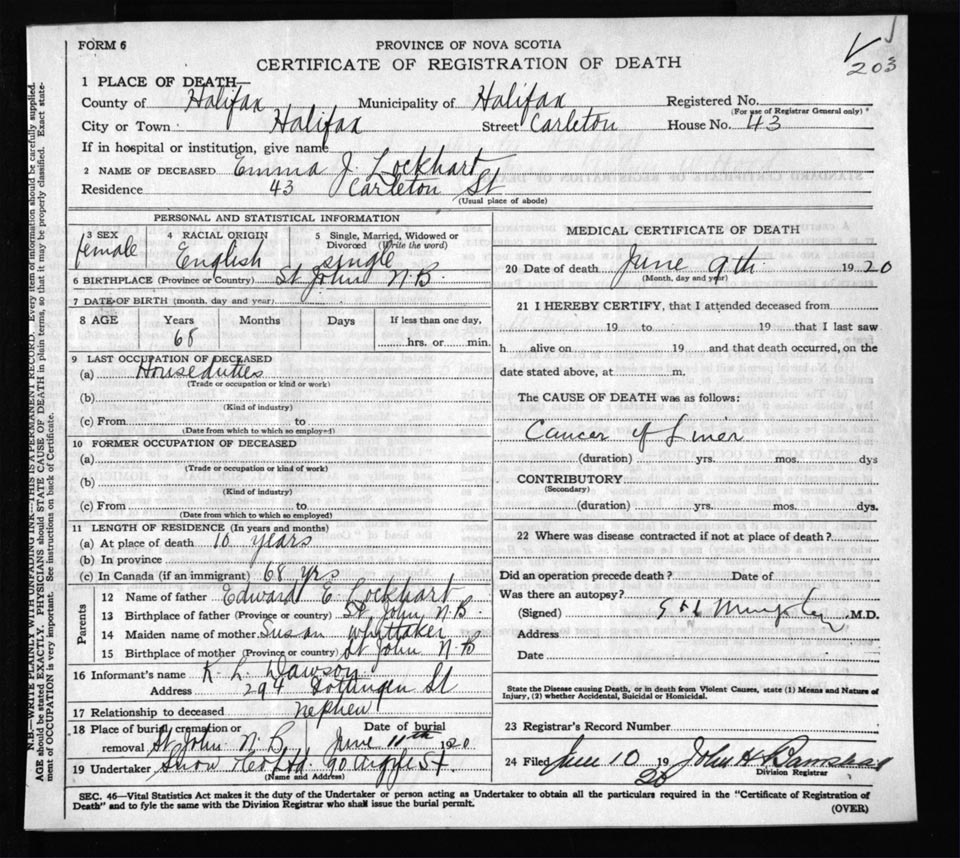 FORM 6
PROVINCE OF NOVA SCOTIA
CERTIFICATE OF REGISTRATION OF DEATH
203
1 PLACE OF DEATH—
County of Halifax Municipality of Halifax Registered No.
(For use of Registrar General only)
City or Town Halifax Street Carleton House No. 43
If in hospital or institution, give name
2 NAME OF DECEASED Emma J. Lockhart
Residence 43 Carleton St
(Usual place of abode)
PERSONAL AND STATISTICAL INFORMATION
3 SEX female
4 RACIAL ORIGIN English
5 Single, Married, Widowed or Divorced (Write the word) single
6 BIRTHPLACE (Province or Country) St John N.B.
7 DATE OF BIRTH (month, day and year)
8 AGE Years 68 Months Days If less than one day, hrs. or min.
9 LAST OCCUPATION OF DECEASED
(a) Houseduties
(Trade or occupation or kind or work)
(b)
(Kind of industry)
(c) From to
(Date from which to which so employed)
10 FORMER OCCUPATION OF DECEASED
(a)
(Trade or occupation or kind of work)
(b)
(Kind of industry)
(c) From to
(Date from which to which so employed)
11 LENGTH OF RESIDENCE (In years and months)
(a) At place of death 10 years
(b) In province
(c) In Canada (if an immigrant) 68 yrs
Parents
12 Name of father Edward E. Lockhart
13 Birthplace of father (Province or country) St John N.B.
14 Maiden name of mother Susan Whittaker
15 Birthplace of mother (Province or country) St John N.B
16 Informant's name K. L. Dawson
Address 294 Gottingen St
17 Relationship to deceased nephew
18 Place of burial, cremation or removal St John N.B. Date of burial June 11th 1920
19 Undertaker Snow & Co Ltd. 90 Argyle St.
(Name and Address)
MEDICAL CERTIFICATE OF DEATH
20 Date of death June 9th 1920
(Month, day and year)
21 I HEREBY CERTIFY, that I attended deceased from
19 to 19 that I last saw
h alive on 19 and that death occurred, on the
date stated above, at m.
The CAUSE OF DEATH was as follows:
Cancer of Liver
(duration) yrs. mos. dys
CONTRIBUTORY
(Secondary)
(duration) yrs. mos. dys.
22 Where was disease contracted if not at place of death?
Did an operation precede death? Date of
Was there an autopsy?
(Signed) M.D.
Address
Date
State the Disease causing Death, or in death from Violent Causes, state (1) Means and Nature of
Injury, (2) whether Accidental, Suicidal or Homicidal.
23 Registrar's Record Number
24 Filed June 10 1920 John H
Division Registrar
SEC. 46—Vital Statistics Act makes it the duty of the Undertaker or person acting as Undertaker to obtain all the particulars required in the "Certificate of Registration of
Death" and to fyle the same with the Division Registrar who shall issue the burial permit.
(OVER)
N.B.—WRITE PLAINLY WITH UNFADING INK—THIS IS A PERMANENT RECORD. Every item of information should be carefully supplied.
AGE should be stated EXACTLY. PHYSICIANS should STATE CAUSE OF DEATH in plain terms, so that it may be properly classified. Exact state-
ment of OCCUPATION is very important. See instructions on back of Certificate.